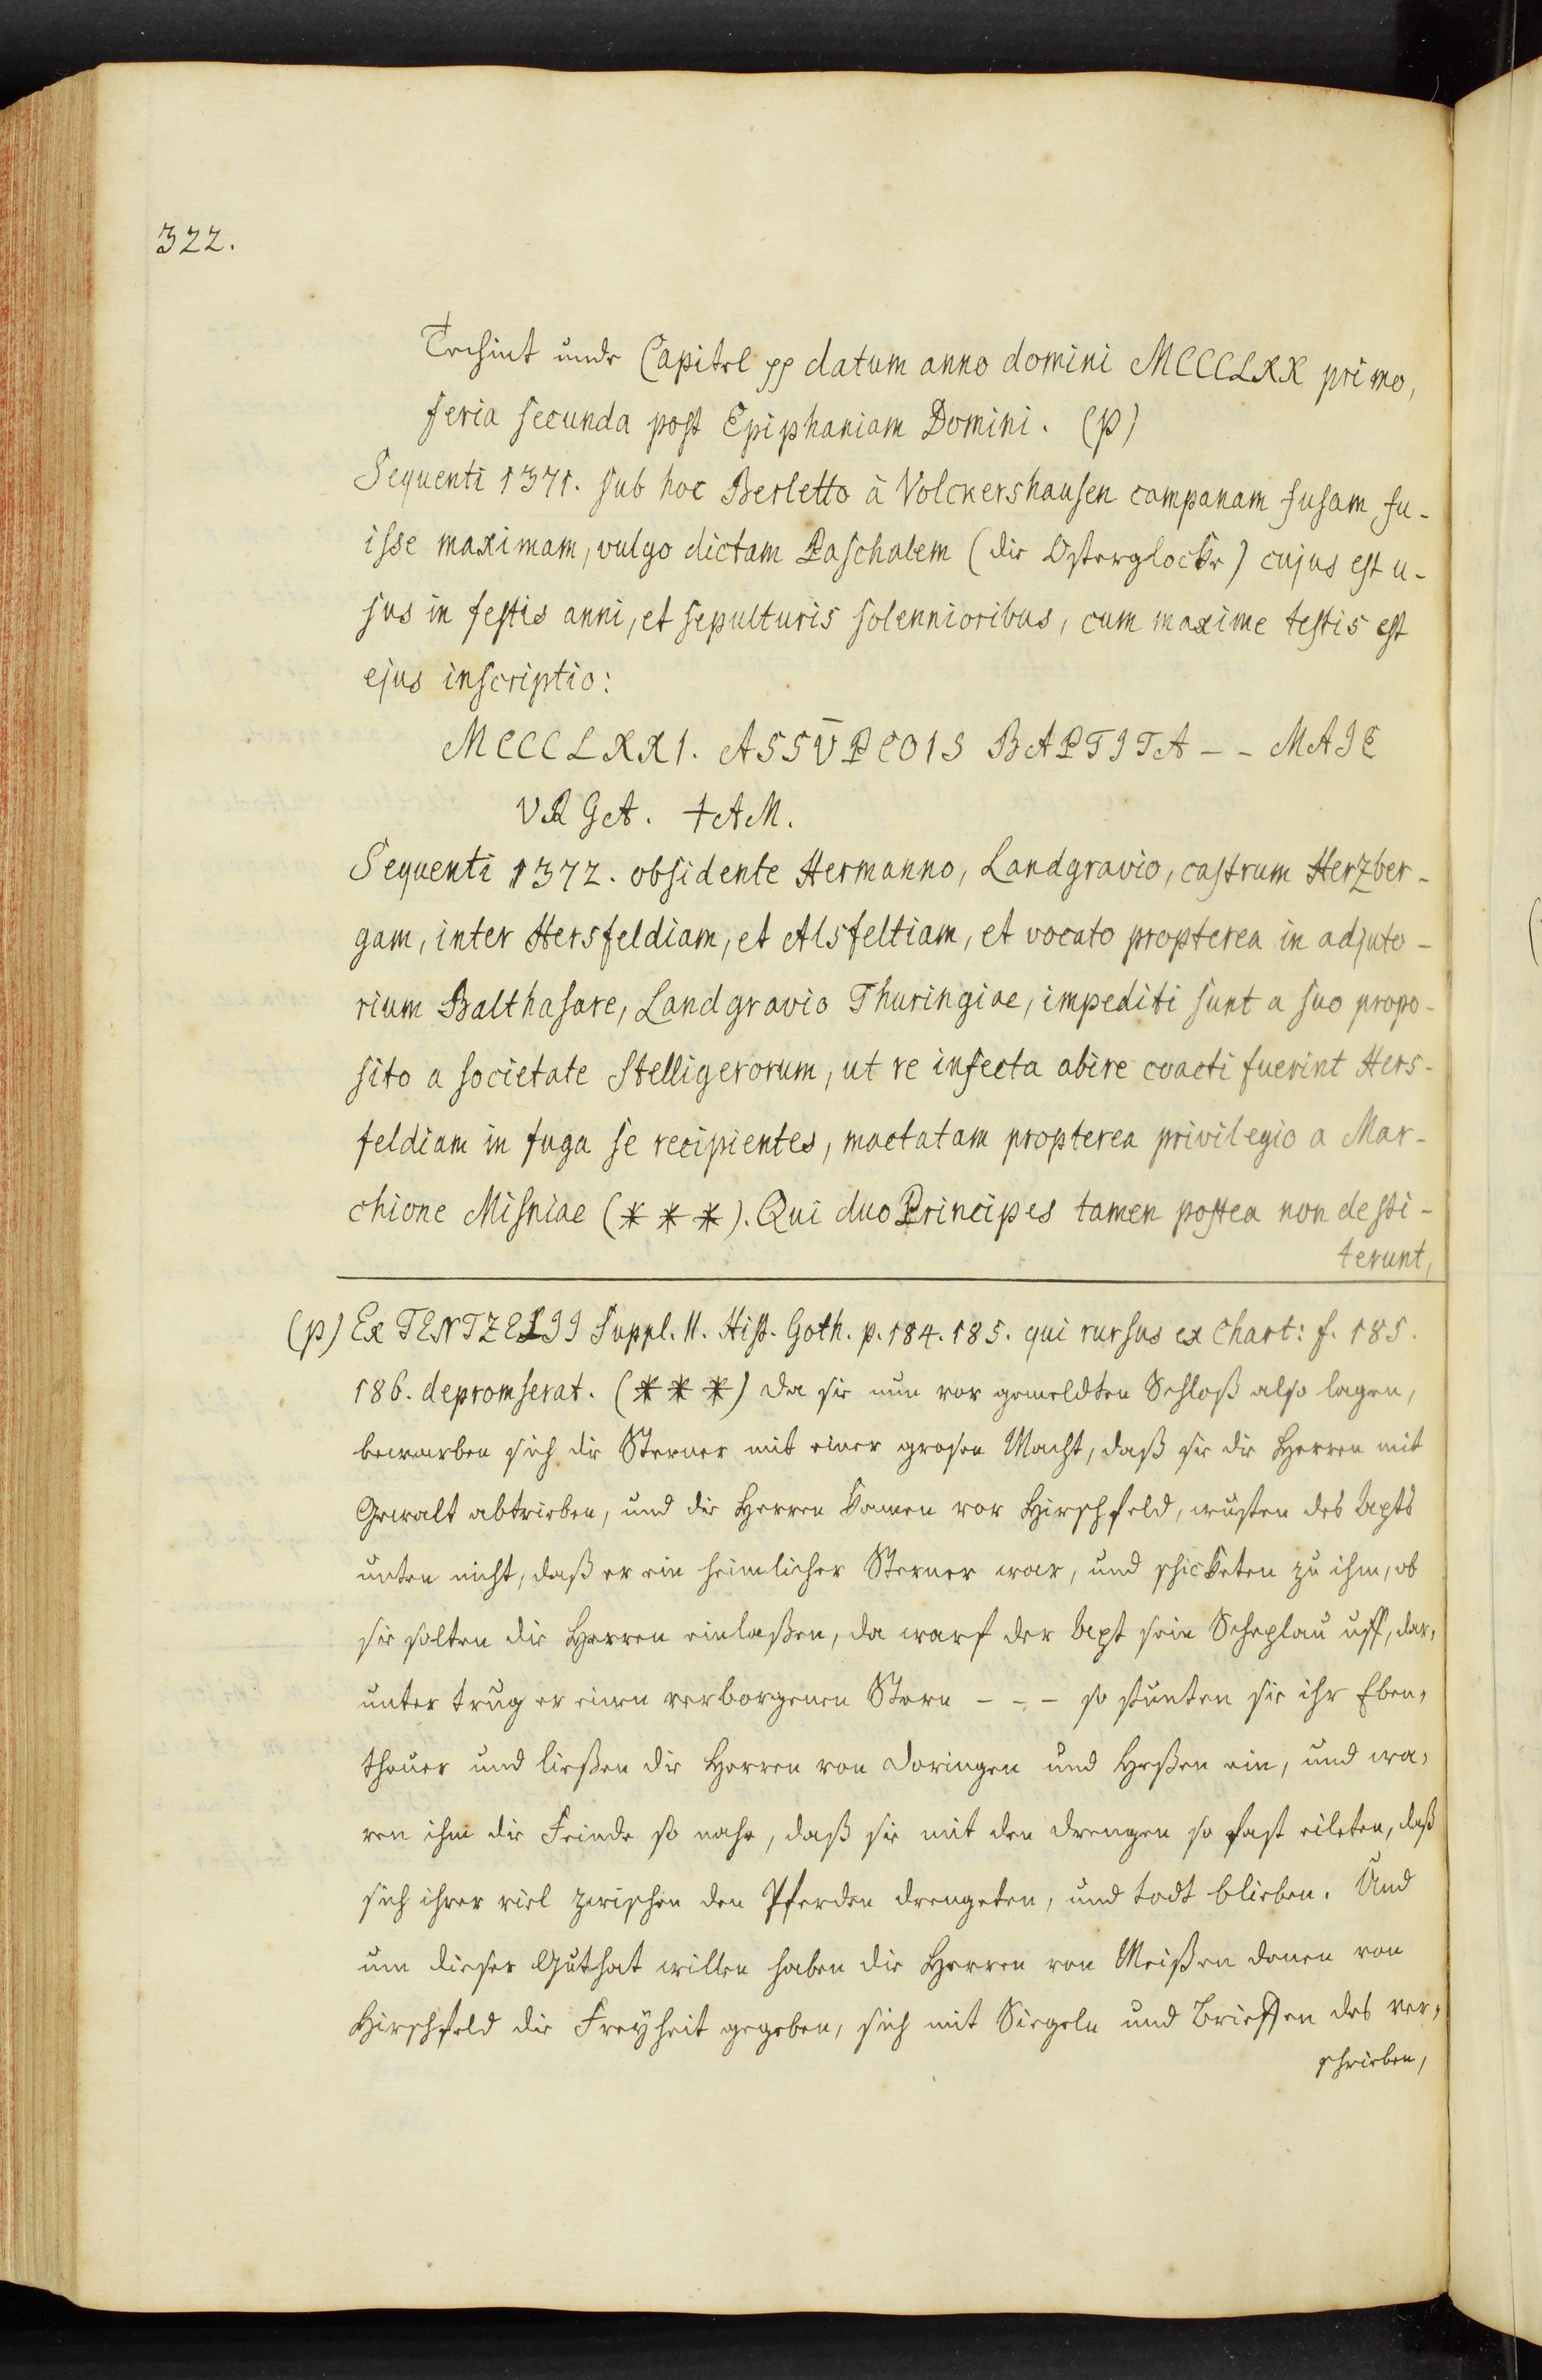 322.
Techint unde Capitel pp datum anno domini MCCCLXX primo,
feria secunda post Epiphaniam Domini. (p)
Sequenti 1371. sub hoc Berletto à Volckershausen campanam fusam fu-
isse maximam, vulgo dictam Paschalem (die Osterglocke) cujus est u-
sus in festis anni, et sepulturis solennioribus, cum maxime testis est
ejus inscriptio:
MCCCLXXI. ASSV̄PCOIS BAPTITA - - MAIE
VRGA. +AM.
Sequenti 1372. obsidente Hermanno, Landgravio, castrum Herzber-
gam, inter Hersfeldiam, et Alsfeltiam, et vocato propterea in adjuto-
rium Balthasare, Landgravio Thuringiae, impediti sunt a suo propo-
sito a societate Stelligerorum, ut re infecta abire coacti fuerint Hers-
feldiam in fuga se recipientes, mactatam propterea privilegio a Mar-
chione Misniae (***). Qui duo Principes tamen postea non desti-
terunt,
(p) Ex TENTZELII Suppl. II. Hist. Goth. p. 184. 185. qui rursus ex Chart: f. 185.
186. depromserat. (***) Da sie nun vor gemeldten Schloß also lagen,
bewarben sich die Sterner mit einer grosen Macht, daß sie die Herren mit
Gewalt abtrieben, und die Herren kamen vor Hirschfeld, wusten des Apts
unten nicht, daß er ein heimlicher Sterner war, und schickten zu ihm, ob
sie solten die Herren einlaßen, da warf der Apt sein Scheplau uff, dar-
unter trug er einen verborgenen Stern - - - so stunten sie ihr Eben-
theuer und ließen die Herren von Doringen und Heßen ein, und wa-
ren ihm die Feinde so nahe, daß sie mit den drengen so fast eileten, daß
sich ihrer viel zwischen den Pferden drengeten, und todt blieben. Und
um dieser Guthat willen haben die Herren von Meißen denen von
Hirschfeld die Freyheit gegeben, sich mit Siegeln und Brieffen des ver-
schrieben,